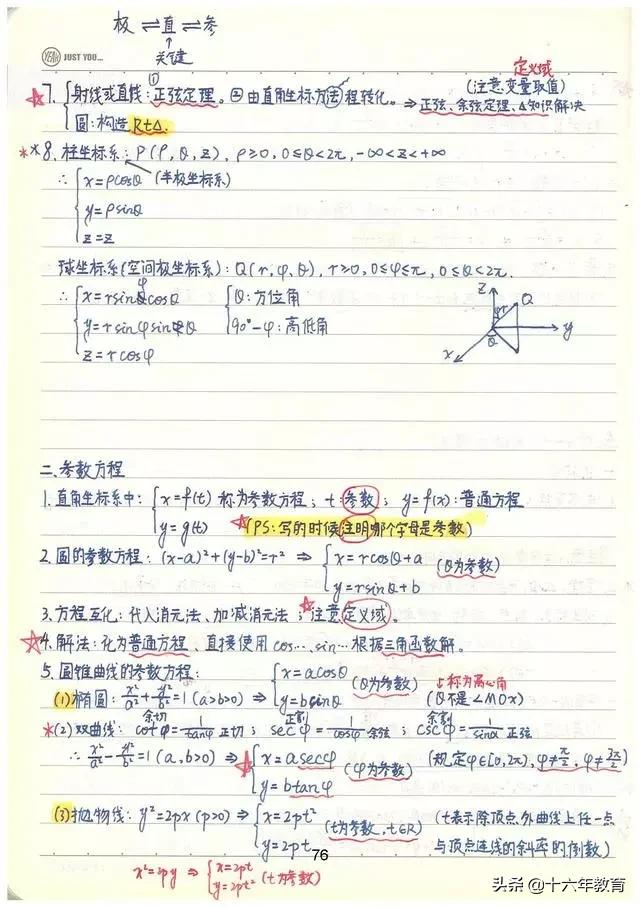 极 ⇌ 直 ⇌ 参
↑
关键
YEAH JUST YOU...
☆7. { 射线或直线: ①正弦定理。②由直角坐标方法程转化。 ⇒ 正弦、余弦定理、△知识解决 (注意变量取值) 定义域
圆: 构造 Rt△.
**8. 柱坐标系: P(ρ, θ, z), ρ≥0, 0≤θ<2π, -∞<z<+∞
∴ { x=ρcosθ (半极坐标系)
y=ρsinθ
z=z
球坐标系(空间极坐标系): Q(r, φ, θ), r≥0, 0≤φ≤π, 0≤θ<2π.
∴ { x=rsinφcosθ { θ: 方位角
y=rsinφsinθ 90°-φ: 高低角
z=rcosφ
z φ r Q y θ x
二、参数方程
1. 直角坐标系中: { x=f(t) 称为参数方程; t: 参数; y=f(x): 普通方程
y=g(t) ☆(PS: 写的时候注明哪个字母是参数)
2. 圆的参数方程: (x-a)²+(y-b)²=r² ⇒ { x=rcosθ+a (θ为参数)
y=rsinθ+b
3. 方程互化: 代入消元法、加减消元法; ☆注意定义域。
☆4. 解法: 化为普通方程、直接使用cos…,sin…根据三角函数解。
5. 圆锥曲线的参数方程:
(1) 椭圆: x²/a²+y²/b²=1 (a>b>0) ⇒ { x=acosθ (θ为参数) ↓称为离心角
y=bsinθ (θ不是∠MOx)
*(2) 双曲线: 余切 cotφ=1/tanφ 正切; 正割 secφ=1/cosφ 余弦; 余割 cscφ=1/sinα 正弦
∴ x²/a²-y²/b²=1 (a,b>0) ⇒ ☆{ x=asecφ (φ为参数) (规定φ∈[0,2π), φ≠π/2, φ≠3π/2)
y=btanφ
(3) 抛物线: y²=2px (p>0) ⇒ { x=2pt² (t为参数, t∈R) (t表示除顶点外曲线上任一点
y=2pt 与顶点连线的斜率的倒数)
76
x²=2py ⇒ { x=2pt
y=2pt² (t为参数)
头条@十六年教育